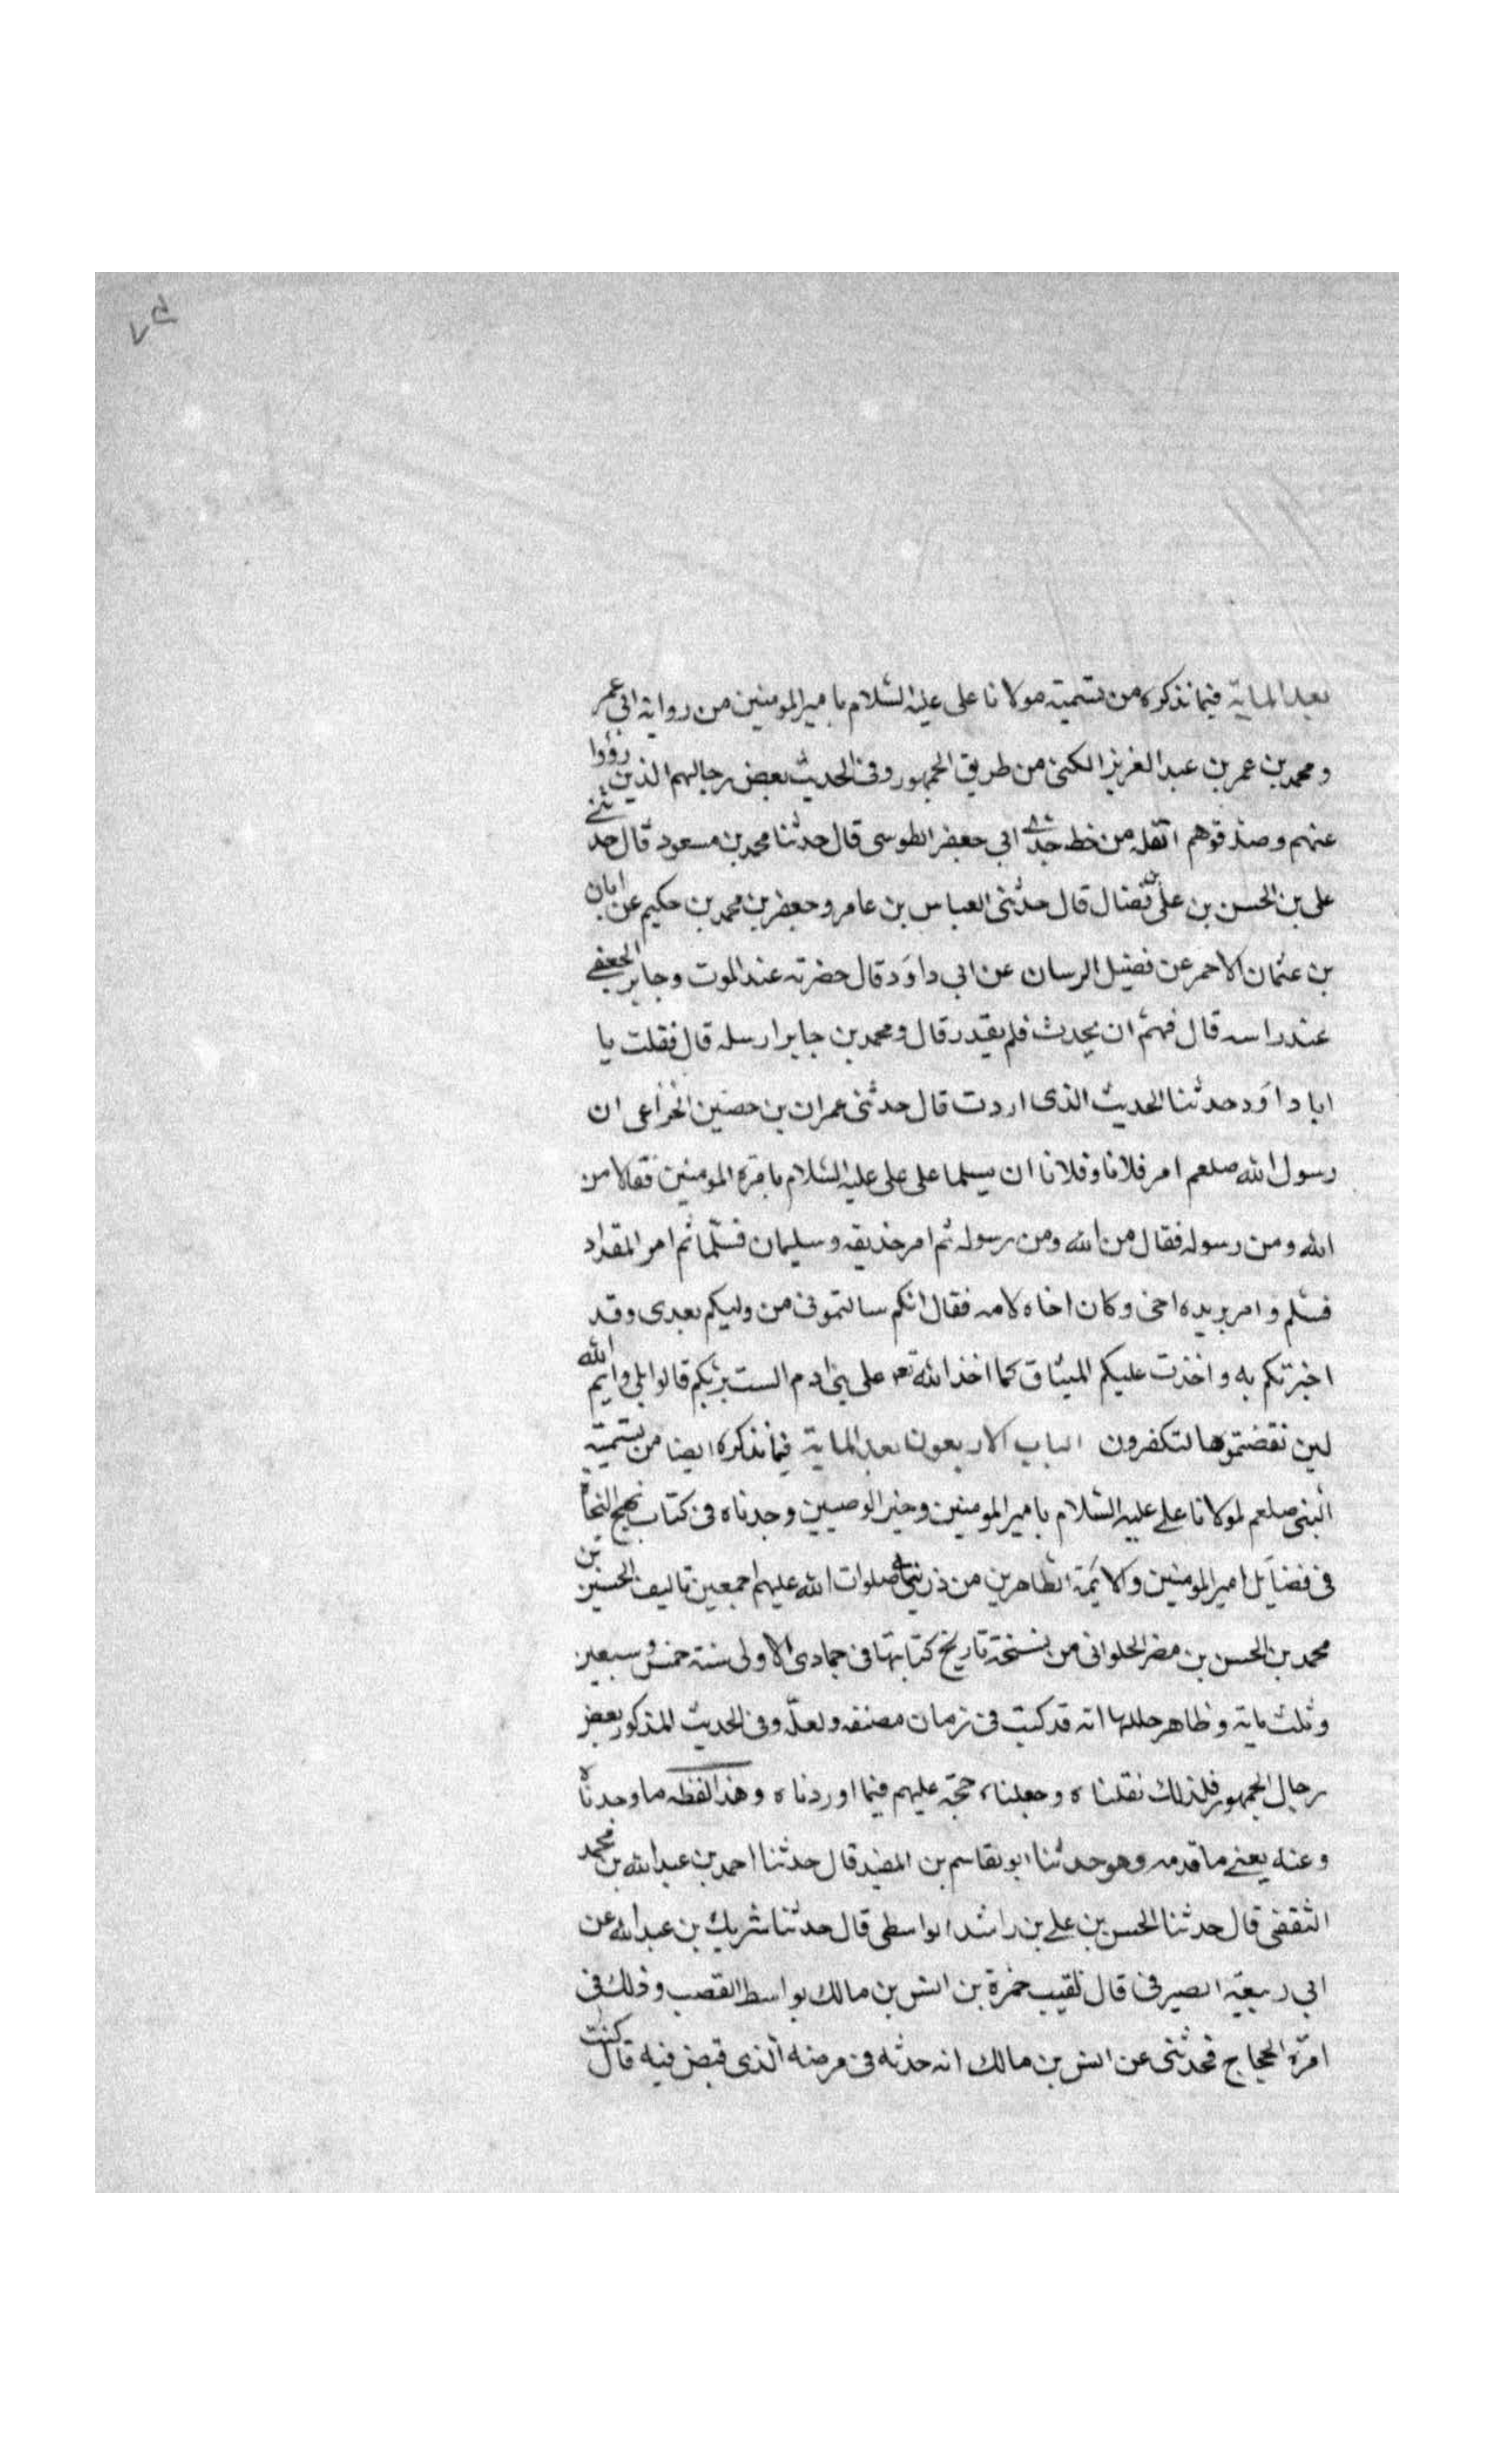 بعد الماية فيما نذكره من تسمية مولانا على عليه السلام بامير المومنين من رواية ابى عمر
ومحمد بن عمر بن عبد العزيز الكشى من طريق الجمهور وفى الحديث بعض رجالهم الذين رووا
عنهم وصدقوهم انقله من خط جدى ابى جعفر الطوسى قال حدثنا محمد بن مسعود قال حدثنى
على بن الحسن بن على بن فضال قال حدثنى العباس بن عامر وجعفر بن محمد بن حكيم عن ابان
بن عثمان الاحمر عن فضيل الرسان عن ابى داود قال حضرته عند الموت وجابر الجعفى
عند راسه قال فهم ان يحدث فلم يقدر قال ومحمد بن جابر ارسله قال فقلت يا
ابا داود حدثنا الحديث الذى اردت قال حدثنى عمران بن حصين الخزاعى ان
رسول الله صلعم امر فلانا وفلانا ان يسلما على على عليه السلام بامرة المومنين فقالا من
الله ومن رسوله فقال من الله ومن رسوله ثم امر حذيفه وسليمان فسلما ثم امر المقداد
فسلم وامر بريده اخى وكان اخاه لامه فقال انكم سالتمونى من وليكم بعدى وقد
اخبرتكم به واخذت عليكم الميثاق كما اخذ الله تعه على بنى ادم الست بربكم قالوا بلى وايم الله
لين نقضتموها لتكفرون الباب الاربعون بعد الماية فيما نذكره ايضا من تسمية
النبى صلعم لمولانا على عليه السلام بامير المومنين وخير الوصيين وجدناه فى كتاب نهج النجاة
فى فضايل امير المومنين والايمة الطاهرين من ذريتهما صلوات الله عليهم اجمعين تاليف الحسين بن
محمد بن الحسن بن مصر الحلوانى من نسخة تاريخ كتابتها فى جمادى الاولى سنة خمس وسبعين
وثلث ماية وظاهر حلدها انه قد كتبت فى زمان مصنفه ولعل وفى الحديث المذكور بعض
رجال الجمهور فلذلك نقلناه وجعلناه حجة عليهم فيما اوردناه وهذا لفظه ما وجدناه
وعنه يعنى ما قدمه وهو حدثنا ابو بقاسم بن المفيد قال حدثنا احمد بن عبد الله بن محمد
الثقفى قال حدثنا الحسن بن على بن راشد الواسطى قال حدثنا شريك بن عبد الله عن
ابى ربيعة الصيرفى قال لقيت حمزة بن انس بن مالك بواسط القصب وذلك فى
امرة الحجاج فحدثنى عن انس بن مالك انه حدثه فى مرضه الذى قبض فيه قال كنت